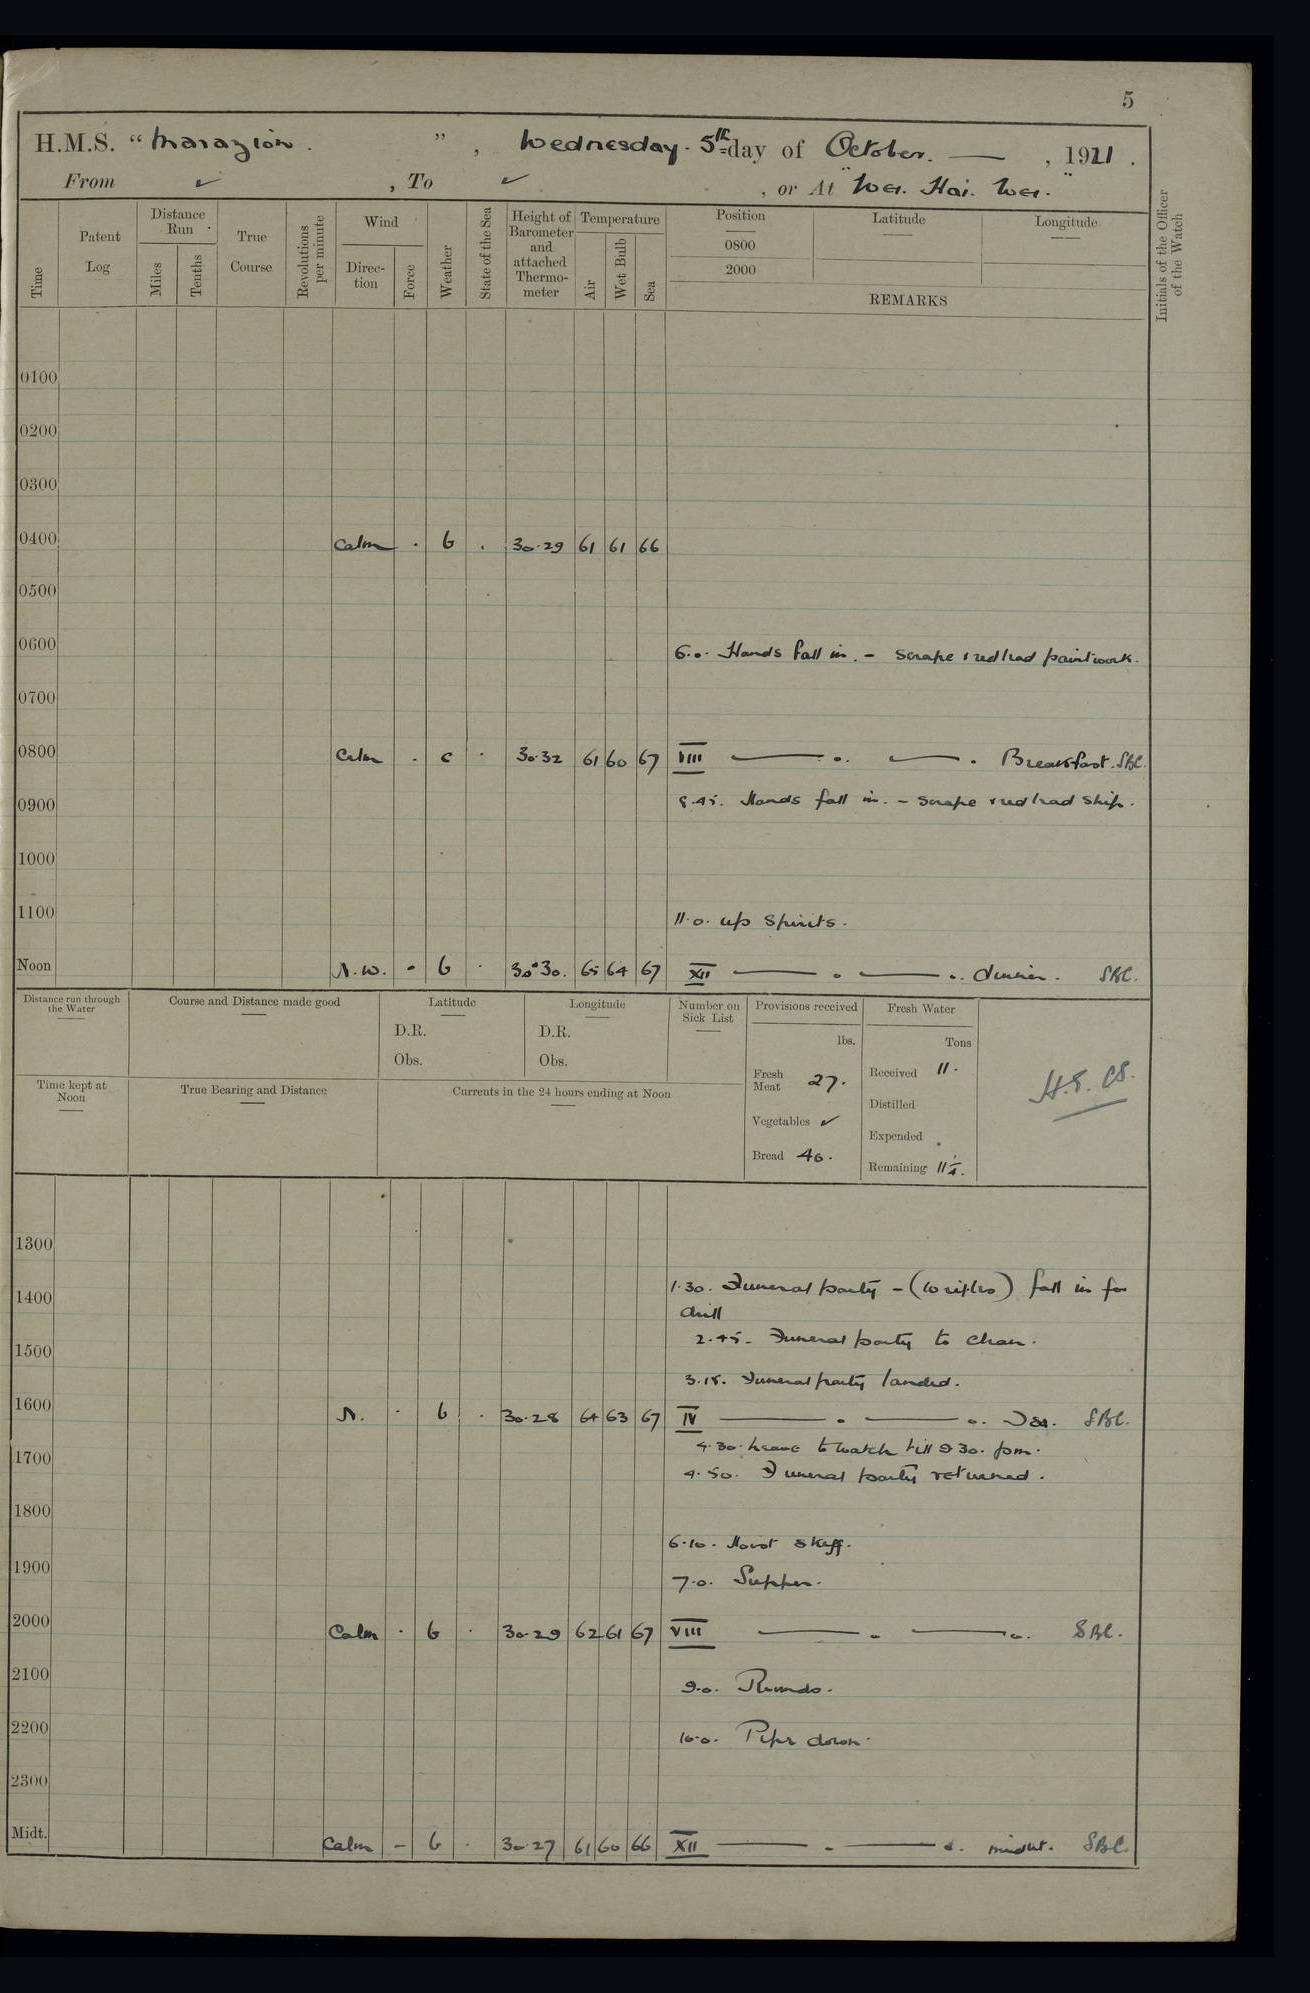 5
H.M.S. "Marazion.", Wednesday. 5th day of October. — , 1921.
From ✓ , To ✓ , or At "Wei. Hai. Wei."
Time
Patent Log
Distance Run
Miles
Tenths
True Course
Revolutions per minute
Wind
Direc-tion
Force
Weather
State of the Sea
Height of Barometer and attached Thermo-meter
Temperature
Air
Wet Bulb
Sea
Position
0800
2000
Latitude
Longitude
REMARKS
Initials of the Officer of the Watch
0100
0200
0300
0400 Calm . b . 30.29 61 61 66
0500
0600 6.0. Hands fall in. – scrape & red lead paintwork.
0700
0800 Calm . c . 30.32 61 60 67 VIII —— o. —— . Breakfast. SBC.
8.45. Hands fall in. – scrape & red lead ship.
0900
1000
1100 11.0. up spirits.
Noon N.W. - b . 30.30. 65 64 67 XII —— o —— o. dinner. SBC.
Distance run through the Water
Course and Distance made good
Latitude
D.R.
Obs.
Longitude
D.R.
Obs.
Number on Sick List
Provisions received
lbs.
Fresh Meat 27.
Vegetables ✓
Bread 40.
Fresh Water
Tons
Received 11.
Distilled
Expended .
Remaining 11¼.
Time kept at Noon
True Bearing and Distance
Currents in the 24 hours ending at Noon
1300
1.30. Funeral party – (10 rifles) fall in for
drill
1400
2.45. Funeral party to clean.
1500
3.15. Funeral party landed.
1600 N. . b . 30.28 64 63 67 IV —— o —— o. Tea. SBC.
4.30. Leave to watch till 9.30. pm.
1700
4.50. Funeral party returned.
1800
6.10. Hoist skiff.
1900
7.0. Supper.
2000 Calm . b . 30.29 62 61 67 VIII —— o —— o. SBC.
2100
9.0. Rounds.
2200
10.0. Pipe down.
2300
Midt. Calm – b . 30.27 61 60 66 XII —— o —— o. midnt. SBC.